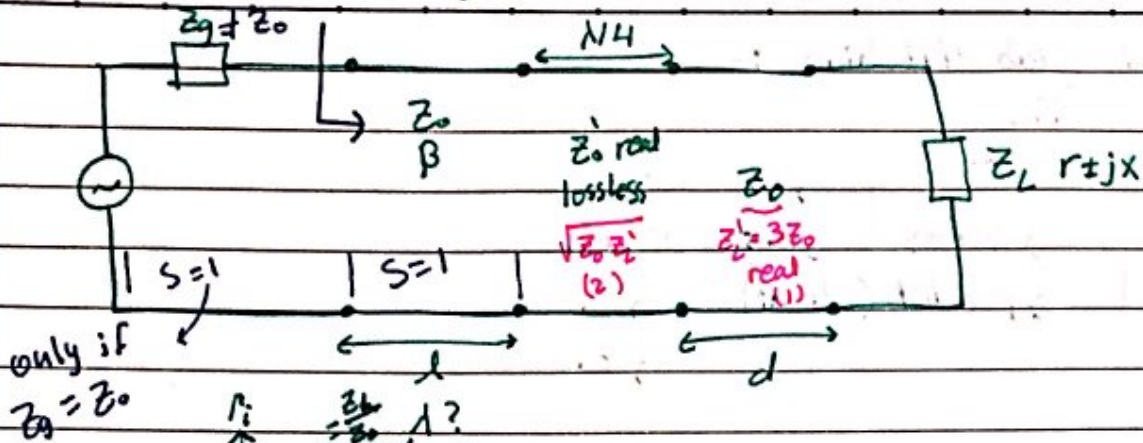 Zg ≠ Z₀
λ/4
Z₀
β
Z₀' real
lossless
√(Z₀ Z_L')
(2)
Z₀
Z_L' = 3Z₀
real
(1)
Z_L r±jx
S=1
S=1
only if
Zg = Z₀
l
d
λ?